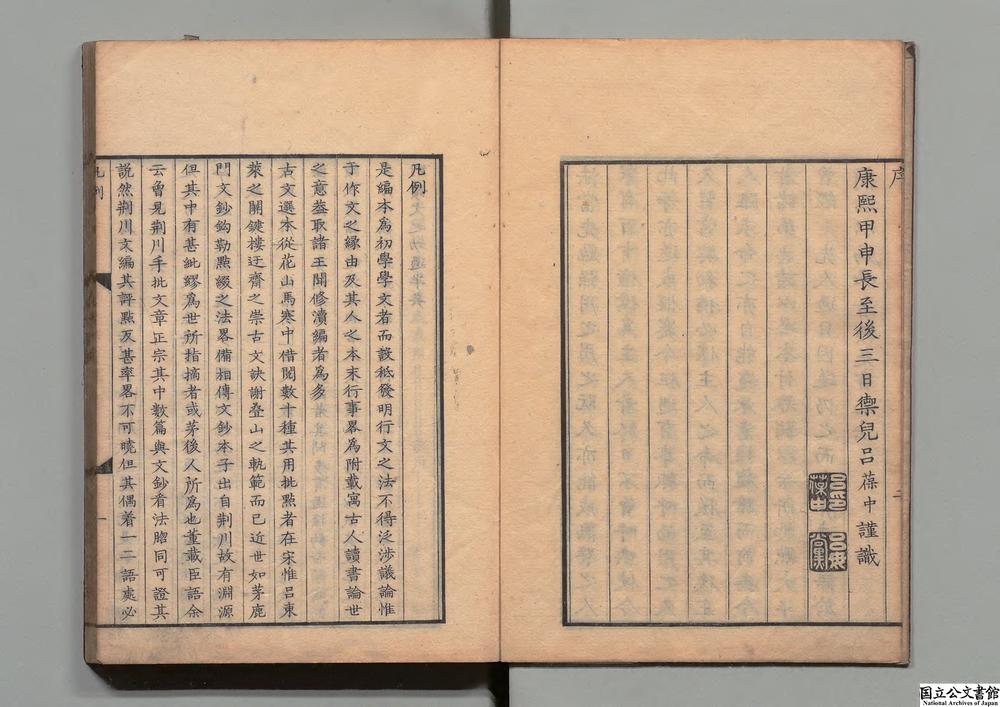 序
康熙甲申長至後三日禦兒呂葆中謹識
凡例
是編本為初學學文者而設秪發明行文之法不得泛涉議論惟
于作文之緣由及其人之本末行事畧為附載寓古人讀書論世
之意蓋取諸王聞修瀆編者為多
古文選本從花山馬寒中借閱數十種其用批點者在宋惟呂東
萊之關鍵樓迂齋之崇古文訣謝疊山之軌範而已近世如茅鹿
門文鈔鈎勒點綴之法畧備相傳文鈔本子出自荆川故有淵源
但其中有甚紕繆為世所指摘者或茅後人所為也董載臣語余
云曾見荆川手批文章正宗其中數篇與文鈔看法脗同可證其
說然荆川文編其評點反甚率畧不可曉但其偶着一二語處必
凡例
一
国立公文書館
National Archives of Japan